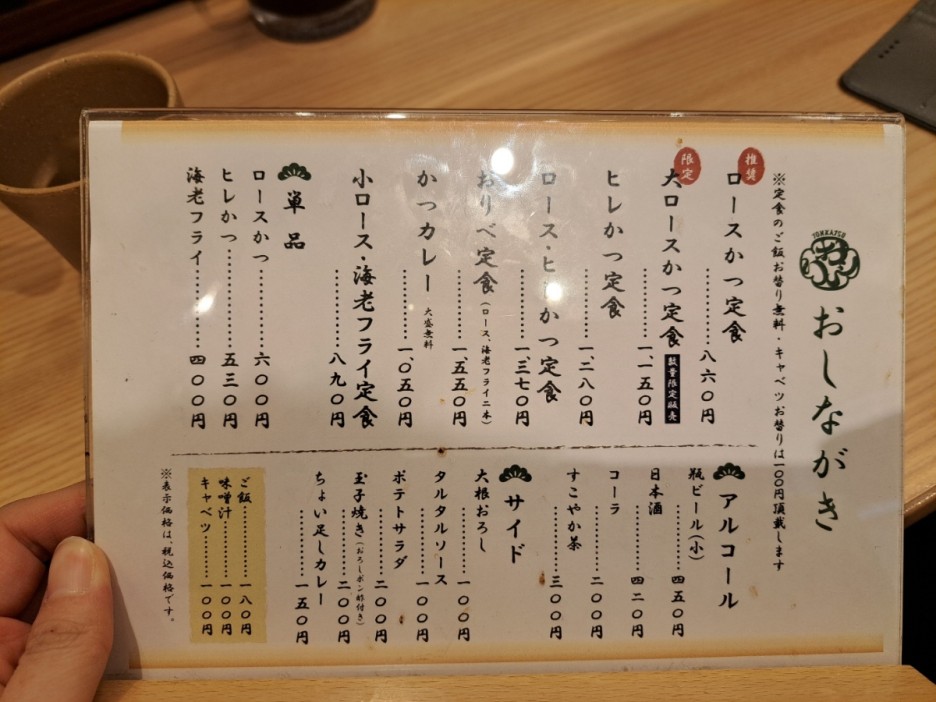 TONKATSU
おしながき
※定食のご飯お替り無料・キャベツお替りは一〇〇円頂戴します
推奨
ロースかつ定食………八六〇円
限定
大ロースかつ定食 数量限定販売………一、一五〇円
ヒレかつ定食………一、二八〇円
ロース・ヒ かつ定食………一、三七〇円
おりべ定食(ロース、海老フライ二本)………一、五五〇円
かつカレー 大盛無料………一、〇五〇円
小ロース・海老フライ定食………八九〇円
単品
ロースかつ………六〇〇円
ヒレかつ………五三〇円
海老フライ………四〇〇円
アルコール
瓶ビール(小)………四五〇円
日本酒………四二〇円
コーラ………二〇〇円
すこやか茶………三〇〇円
サイド
大根おろし………一〇〇円
タルタルソース………一〇〇円
ポテトサラダ………二〇〇円
玉子焼き(おろしポン酢付き)………二〇〇円
ちょい足しカレー………一五〇円
ご飯………一八〇円
味噌汁………一〇〇円
キャベツ………一〇〇円
※表示価格は、税込価格です。